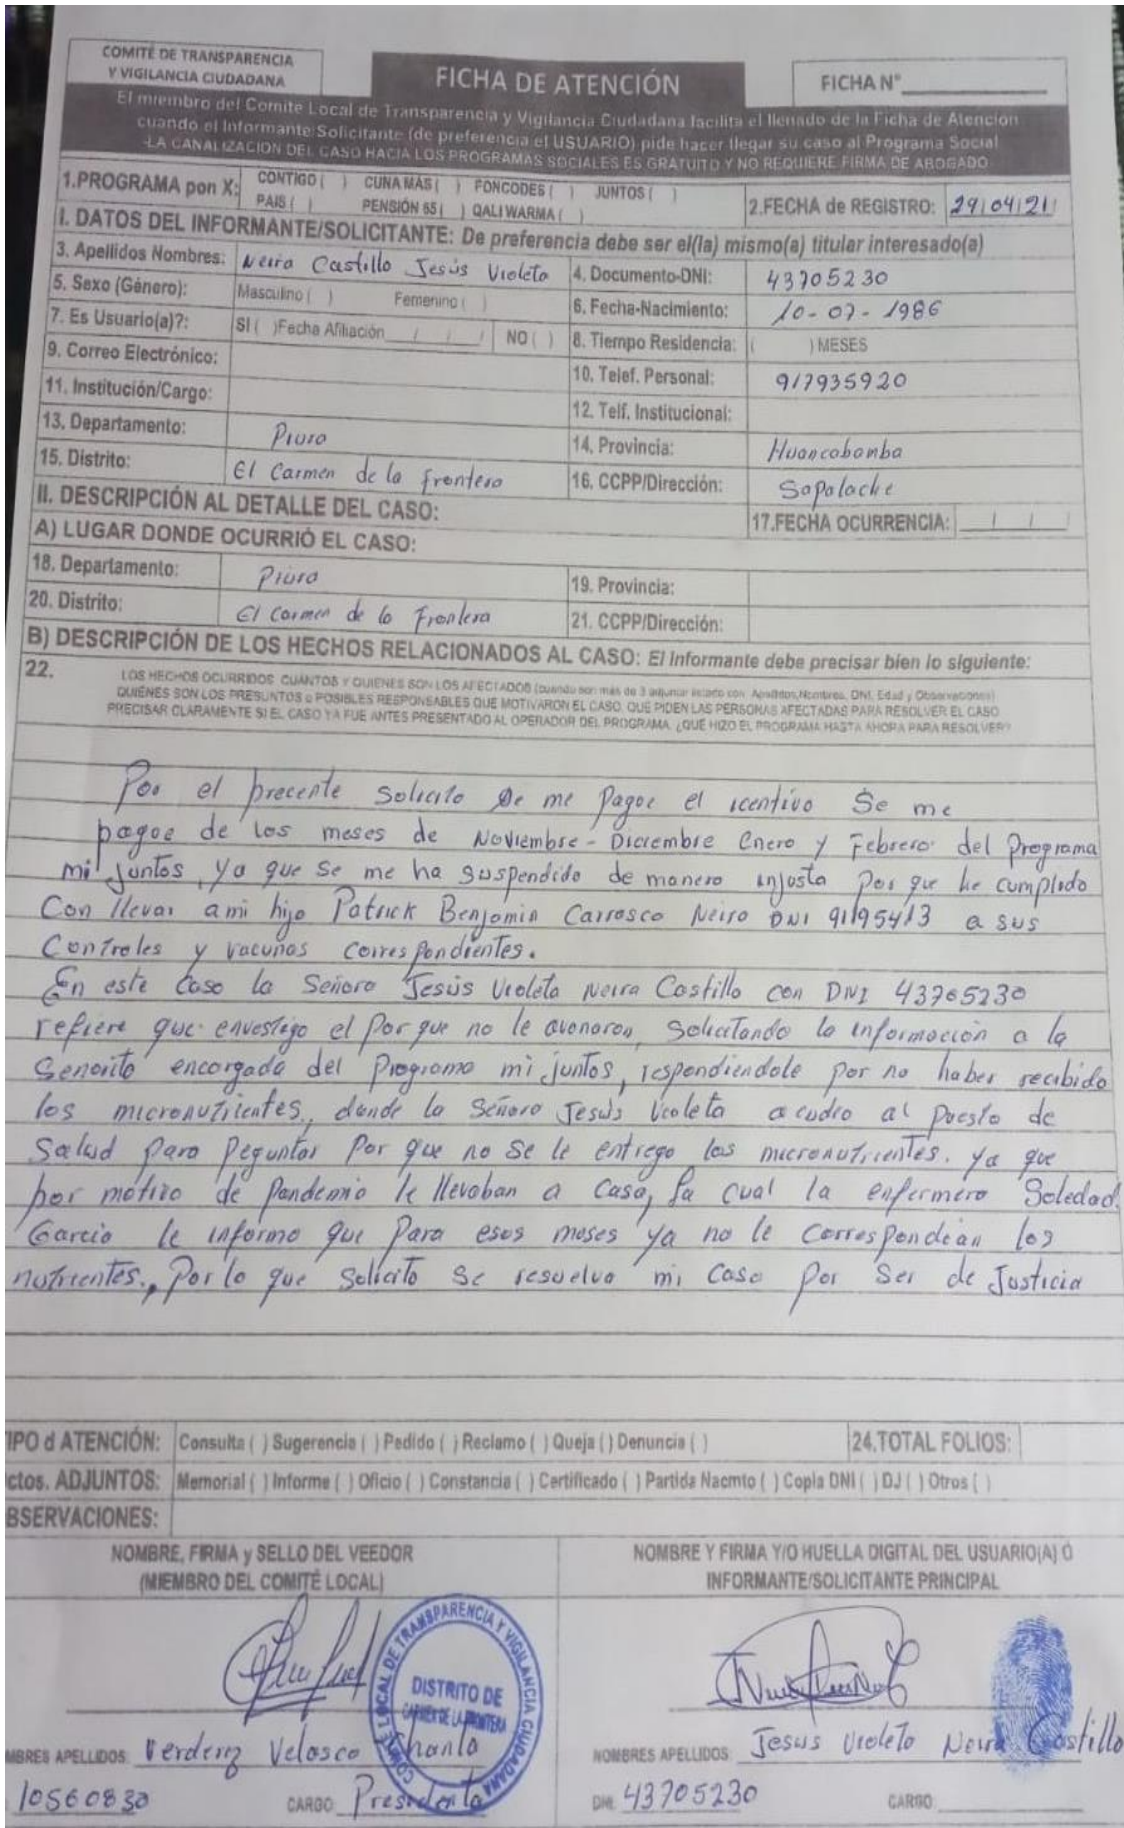 COMITÉ DE TRANSPARENCIA
Y VIGILANCIA CIUDADANA
FICHA DE ATENCIÓN
FICHA N°
El miembro del Comité Local de Transparencia y Vigilancia Ciudadana facilita el llenado de la Ficha de Atención
cuando el Informante/Solicitante (de preferencia el USUARIO) pide hacer llegar su caso al Programa Social
-LA CANALIZACIÓN DEL CASO HACIA LOS PROGRAMAS SOCIALES ES GRATUITO Y NO REQUIERE FIRMA DE ABOGADO
1.PROGRAMA pon X: CONTIGO ( ) CUNA MÁS ( ) FONCODES ( ) JUNTOS ( )
PAIS ( ) PENSIÓN 65 ( ) QALI WARMA ( )
2.FECHA de REGISTRO: 29/04/21/
I. DATOS DEL INFORMANTE/SOLICITANTE: De preferencia debe ser el(la) mismo(a) titular interesado(a)
3. Apellidos Nombres: Neira Castillo Jesús Violeta 4. Documento-DNI: 43705230
5. Sexo (Género): Masculino ( ) Femenino ( ) 6. Fecha-Nacimiento: 10-07-1986
7. Es Usuario(a)?: SI ( )Fecha Afiliación / / / NO ( ) 8. Tiempo Residencia: ( ) MESES
9. Correo Electrónico: 10. Telef. Personal: 917935920
11. Institución/Cargo: 12. Telf. Institucional:
13. Departamento: Piura 14. Provincia: Huancabamba
15. Distrito: El Carmen de la frontera 16. CCPP/Dirección: Sapalache
II. DESCRIPCIÓN AL DETALLE DEL CASO: 17.FECHA OCURRENCIA: / / /
A) LUGAR DONDE OCURRIÓ EL CASO:
18. Departamento: Piura 19. Provincia:
20. Distrito: El Carmen de la Frontera 21. CCPP/Dirección:
B) DESCRIPCIÓN DE LOS HECHOS RELACIONADOS AL CASO: El Informante debe precisar bien lo siguiente:
22. LOS HECHOS OCURRIDOS CUÁNTOS Y QUIÉNES SON LOS AFECTADOS (cuando son más de 3 adjuntar listado con Apellidos,Nombres, DNI, Edad y Observaciones)
QUIÉNES SON LOS PRESUNTOS o POSIBLES RESPONSABLES QUE MOTIVARON EL CASO. QUE PIDEN LAS PERSONAS AFECTADAS PARA RESOLVER EL CASO
PRECISAR CLARAMENTE SI EL CASO YA FUE ANTES PRESENTADO AL OPERADOR DEL PROGRAMA. ¿QUÉ HIZO EL PROGRAMA HASTA AHORA PARA RESOLVER?
Por el precente solicito se me pague el icentivo Se me
pague de los meses de Noviembre - Diciembre Enero y Febrero del Programa
mil Juntos, ya que se me ha suspendido de manera injusta por que he cumplido
Con llevar a mi hijo Patrick Benjamin Carrasco Neira DNI 91195413 a sus
Controles y vacunas correspondientes.
En este caso la Señora Jesús Violeta Neira Castillo con DNI 43705230
refiere que envestigo el Por que no le avonaron, solicitando la información a la
Senorita encargada del Programa mi juntos, respondiendole por no haber recibido
los micronutrientes, donde la Señora Jesús Violeta acudio al Puesto de
Salud para Peguntar Por que no se le entrego los micronutrientes. ya que
por motivo de Pandemia le llevaban a casa, la cual la enfermera Soledad
Garcia le informo que para esos meses ya no le correspondian los
nutrientes., Por lo que solicito se resuelva mi caso por ser de Justicia
IPO d ATENCIÓN: Consulta ( ) Sugerencia ( ) Pedido ( ) Reclamo ( ) Queja ( ) Denuncia ( ) 24.TOTAL FOLIOS:
ctos. ADJUNTOS: Memorial ( ) Informe ( ) Oficio ( ) Constancia ( ) Certificado ( ) Partida Nacmto ( ) Copia DNI ( ) DJ ( ) Otros ( )
BSERVACIONES:
NOMBRE, FIRMA y SELLO DEL VEEDOR
(MIEMBRO DEL COMITÉ LOCAL)
NOMBRE Y FIRMA Y/O HUELLA DIGITAL DEL USUARIO(A) Ó
INFORMANTE/SOLICITANTE PRINCIPAL
COMITÉ LOCAL DE TRANSPARENCIA Y VIGILANCIA CIUDADANA
DISTRITO DE
CARMEN DE LA FRONTERA
MBRES APELLIDOS: Velasco
NOMBRES APELLIDOS: Jesus Violeta Neira Castillo
10560830 CARGO: Presidenta
DNI: 43705230 CARGO: